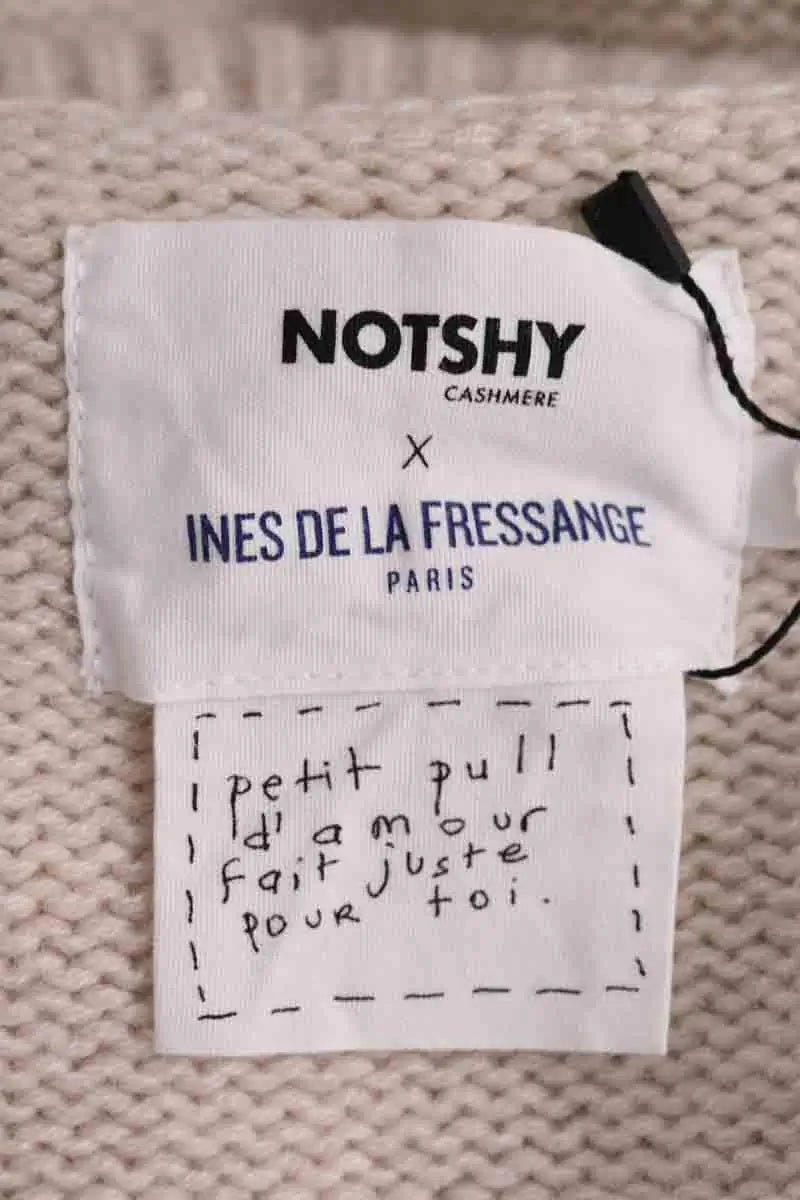 NOTSHY
CASHMERE
X
INES DE LA FRESSANGE
PARIS
petit pull
d'amour
fait juste
pour toi.